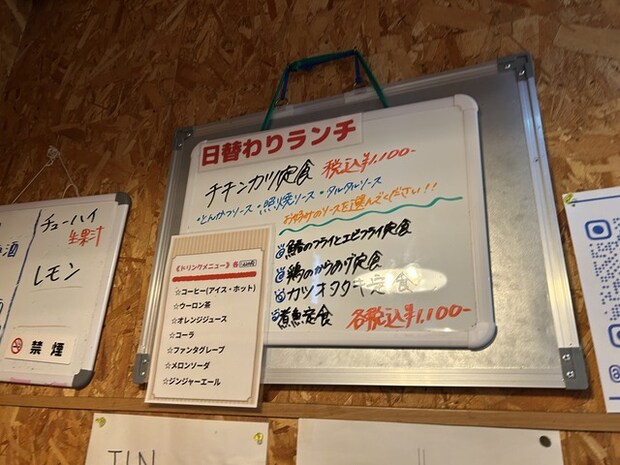 日替わりランチ
チキンカツ定食 税込¥1,100-
・とんかつソース・照焼ソース・タルタルソース
お好みのソースを選んでください!!
鯵のフライとエビフライ定食
鶏のからあげ定食
カツオタタキ定食
煮魚定食 各税込¥1,100-
《ドリンクメニュー》各
☆コーヒー(アイス・ホット)
☆ウーロン茶
☆オレンジジュース
☆コーラ
☆ファンタグレープ
☆メロンソーダ
☆ジンジャーエール
チューハイ
生果汁
レモン
酒
禁煙